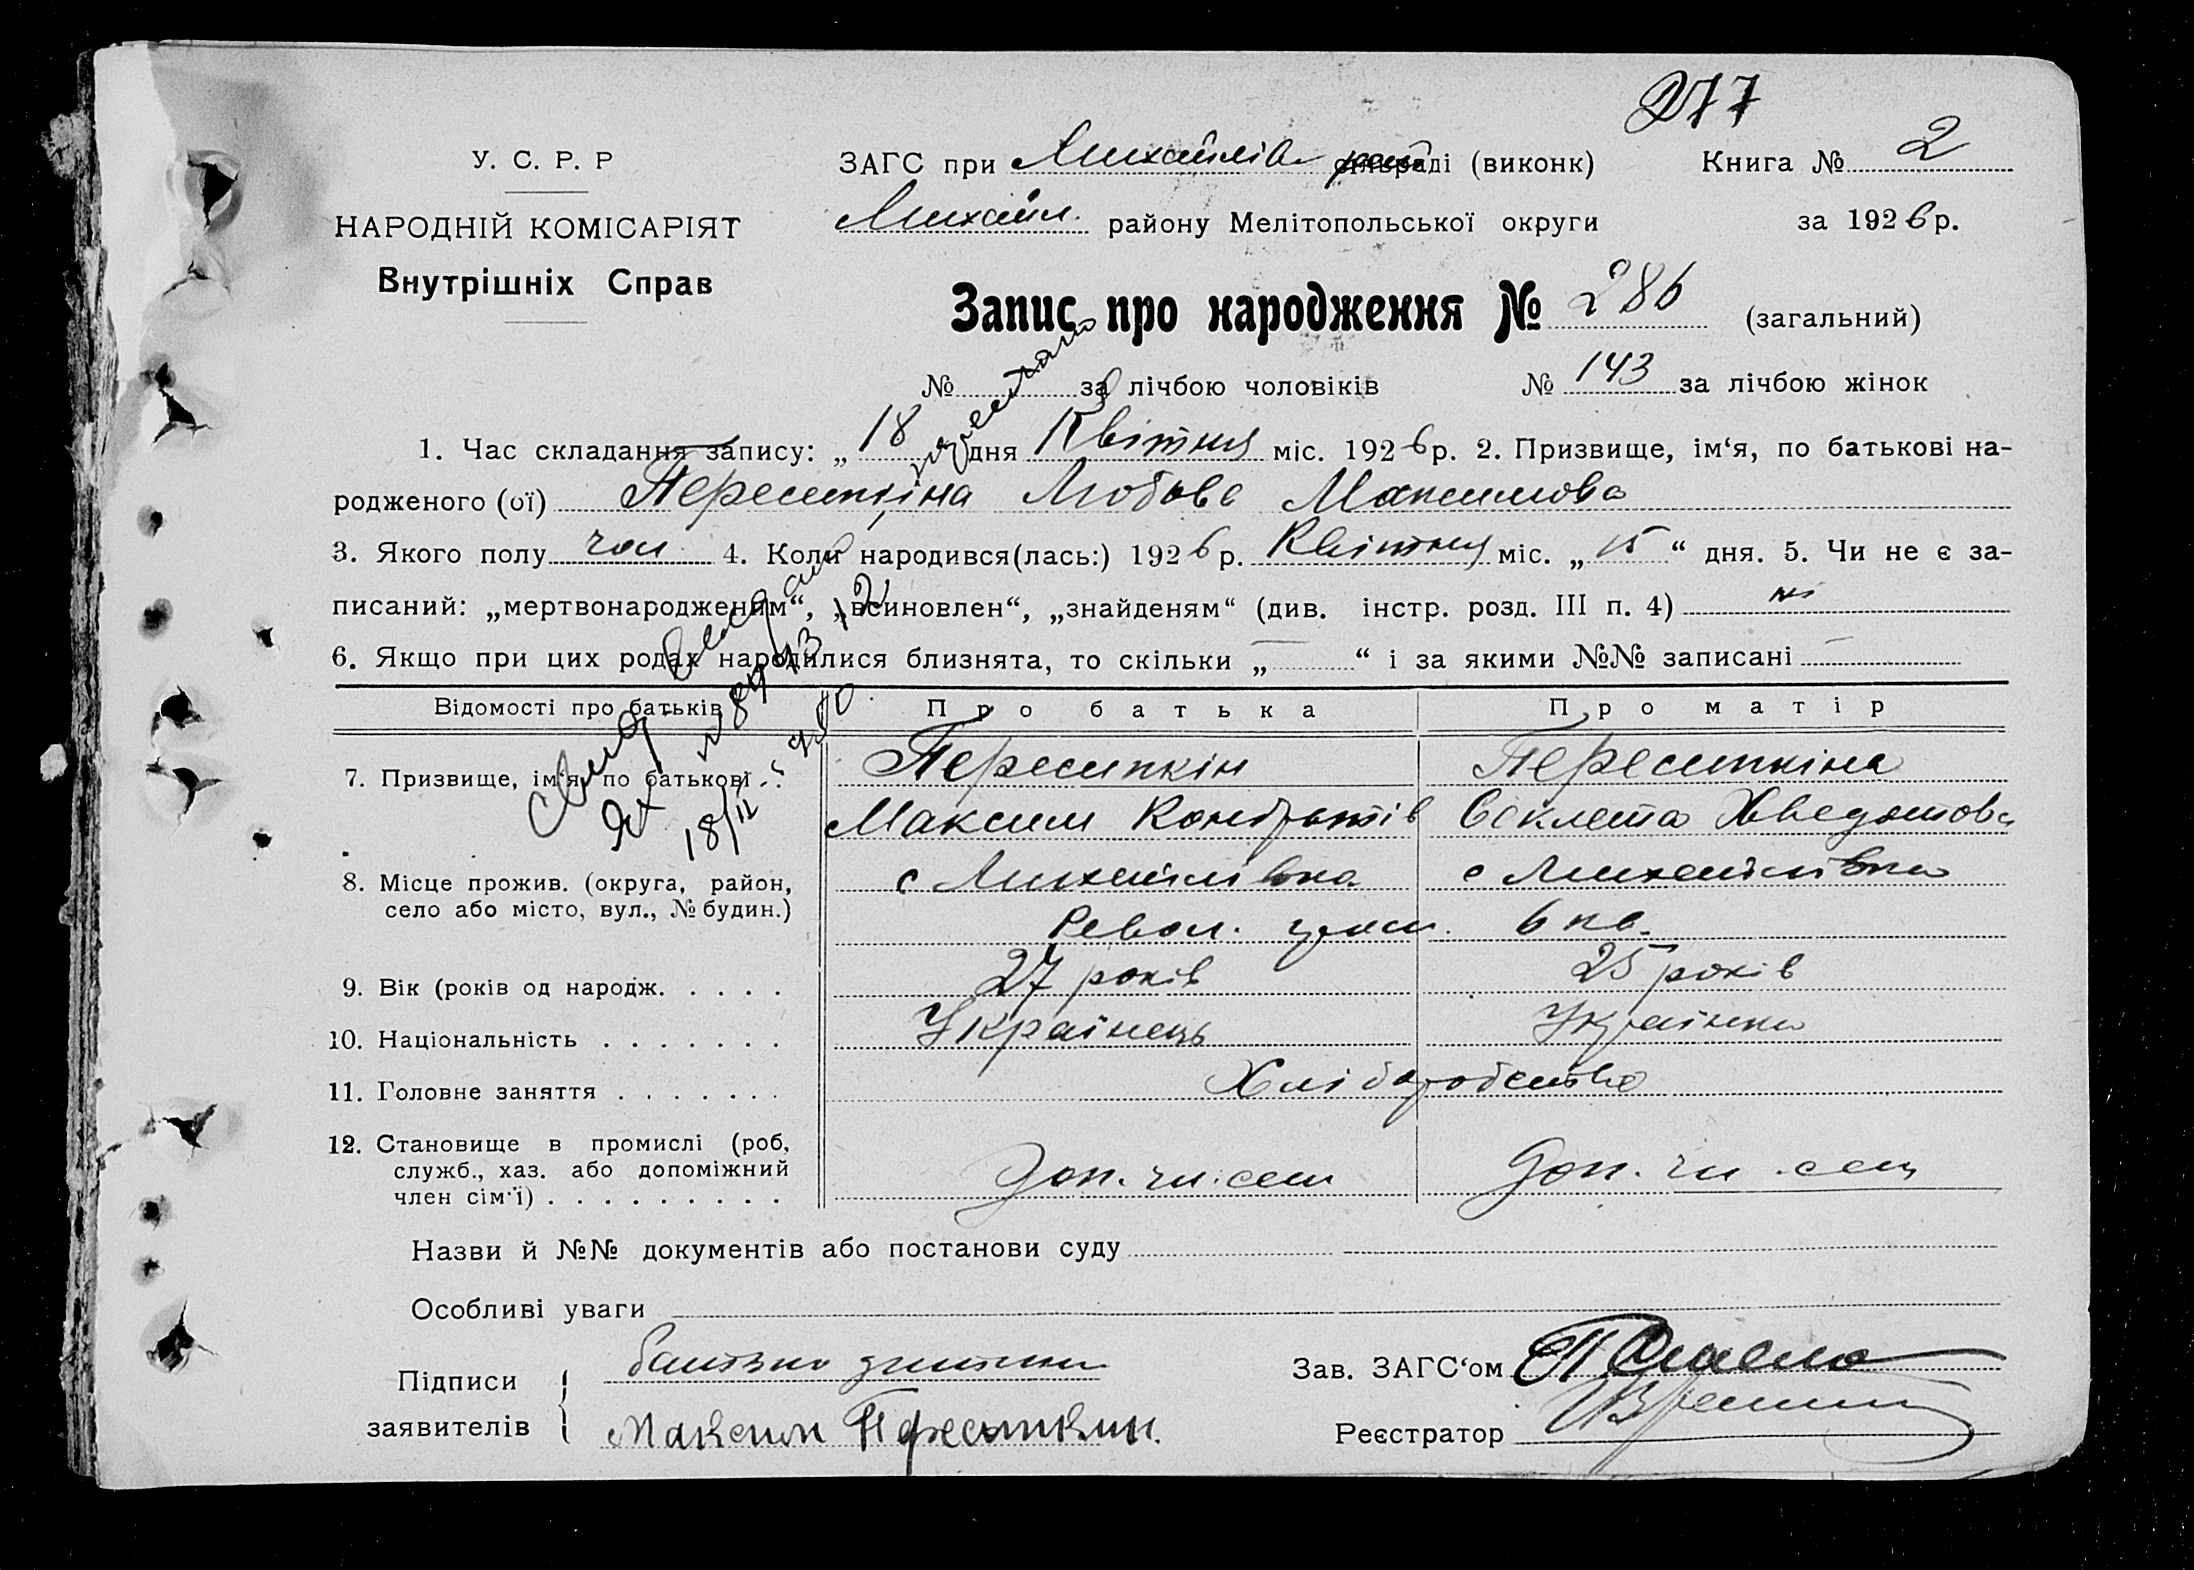 277
У. С. Р. Р
ЗАГС при Михайлів рай сільраді (виконк) Книга № 2
НАРОДНІЙ КОМІСАРІЯТ
Михайл. району Мелітопольської округи за 1926 р.
Внутрішніх Справ
Запис про народження № 286 (загальний)
№ за лічбою чоловіків № 143 за лічбою жінок
1. Час складання запису: „ 18 дня Квітня міс. 1926 р. 2. Призвище, ім‘я, по батькові на-
родженого (ої) Пересипкіна Любов Максимова
3. Якого полу 4. Коли народився(лась:) 1926 р. Квітня міс. „ 15 “ дня. 5. Чи не є за-
писаний: „мертвонародженям“, „всиновлен“, „знайденям“ (див. інстр. розд. III п. 4) ні
6. Якщо при цих родах народилися близнята, то скільки „ — “ і за якими №№ записані —
Відомості про батьків Про батька Про матір
7. Призвище, ім‘я, по батькові Пересипкін Пересипкіна
Максим Кондратів Векл­ета Хведотова
18/II
8. Місце прожив. (округа, район, с Михайлівка с Михайлівка
село або місто, вул., № будин.)
Револ. 6 кв.
9. Вік (років од народж. 27 років 25 років
10. Національність Українець Українка
11. Головне заняття Хліборобство
12. Становище в промислі (роб,
служб., хаз. або допоміжний
член сім‘ї) Доп. чл. сем Доп. чл. сем
Назви й №№ документів або постанови суду
Особливі уваги
Підписи батько дитини
заявителів Максим Пересипкин.
Зав. ЗАГС‘ом
Реєстратор